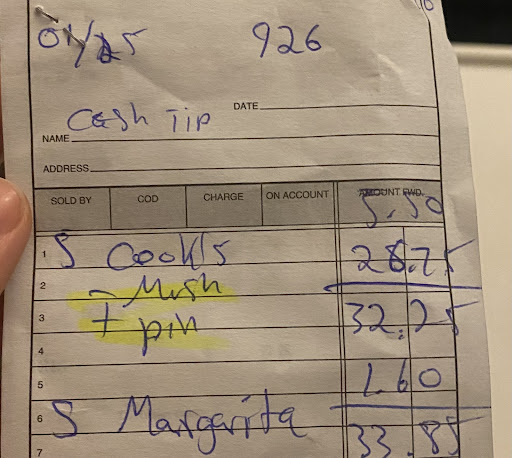 01/25 926
DATE
Cash Tip
NAME
ADDRESS
SOLD BY COD CHARGE ON ACCOUNT AMOUNT FWD.
5.50
1 S Cook's 26.75
2 - Mush
3 + pin 32.25
4
5 1.60
6 S Margarita
7 33.85